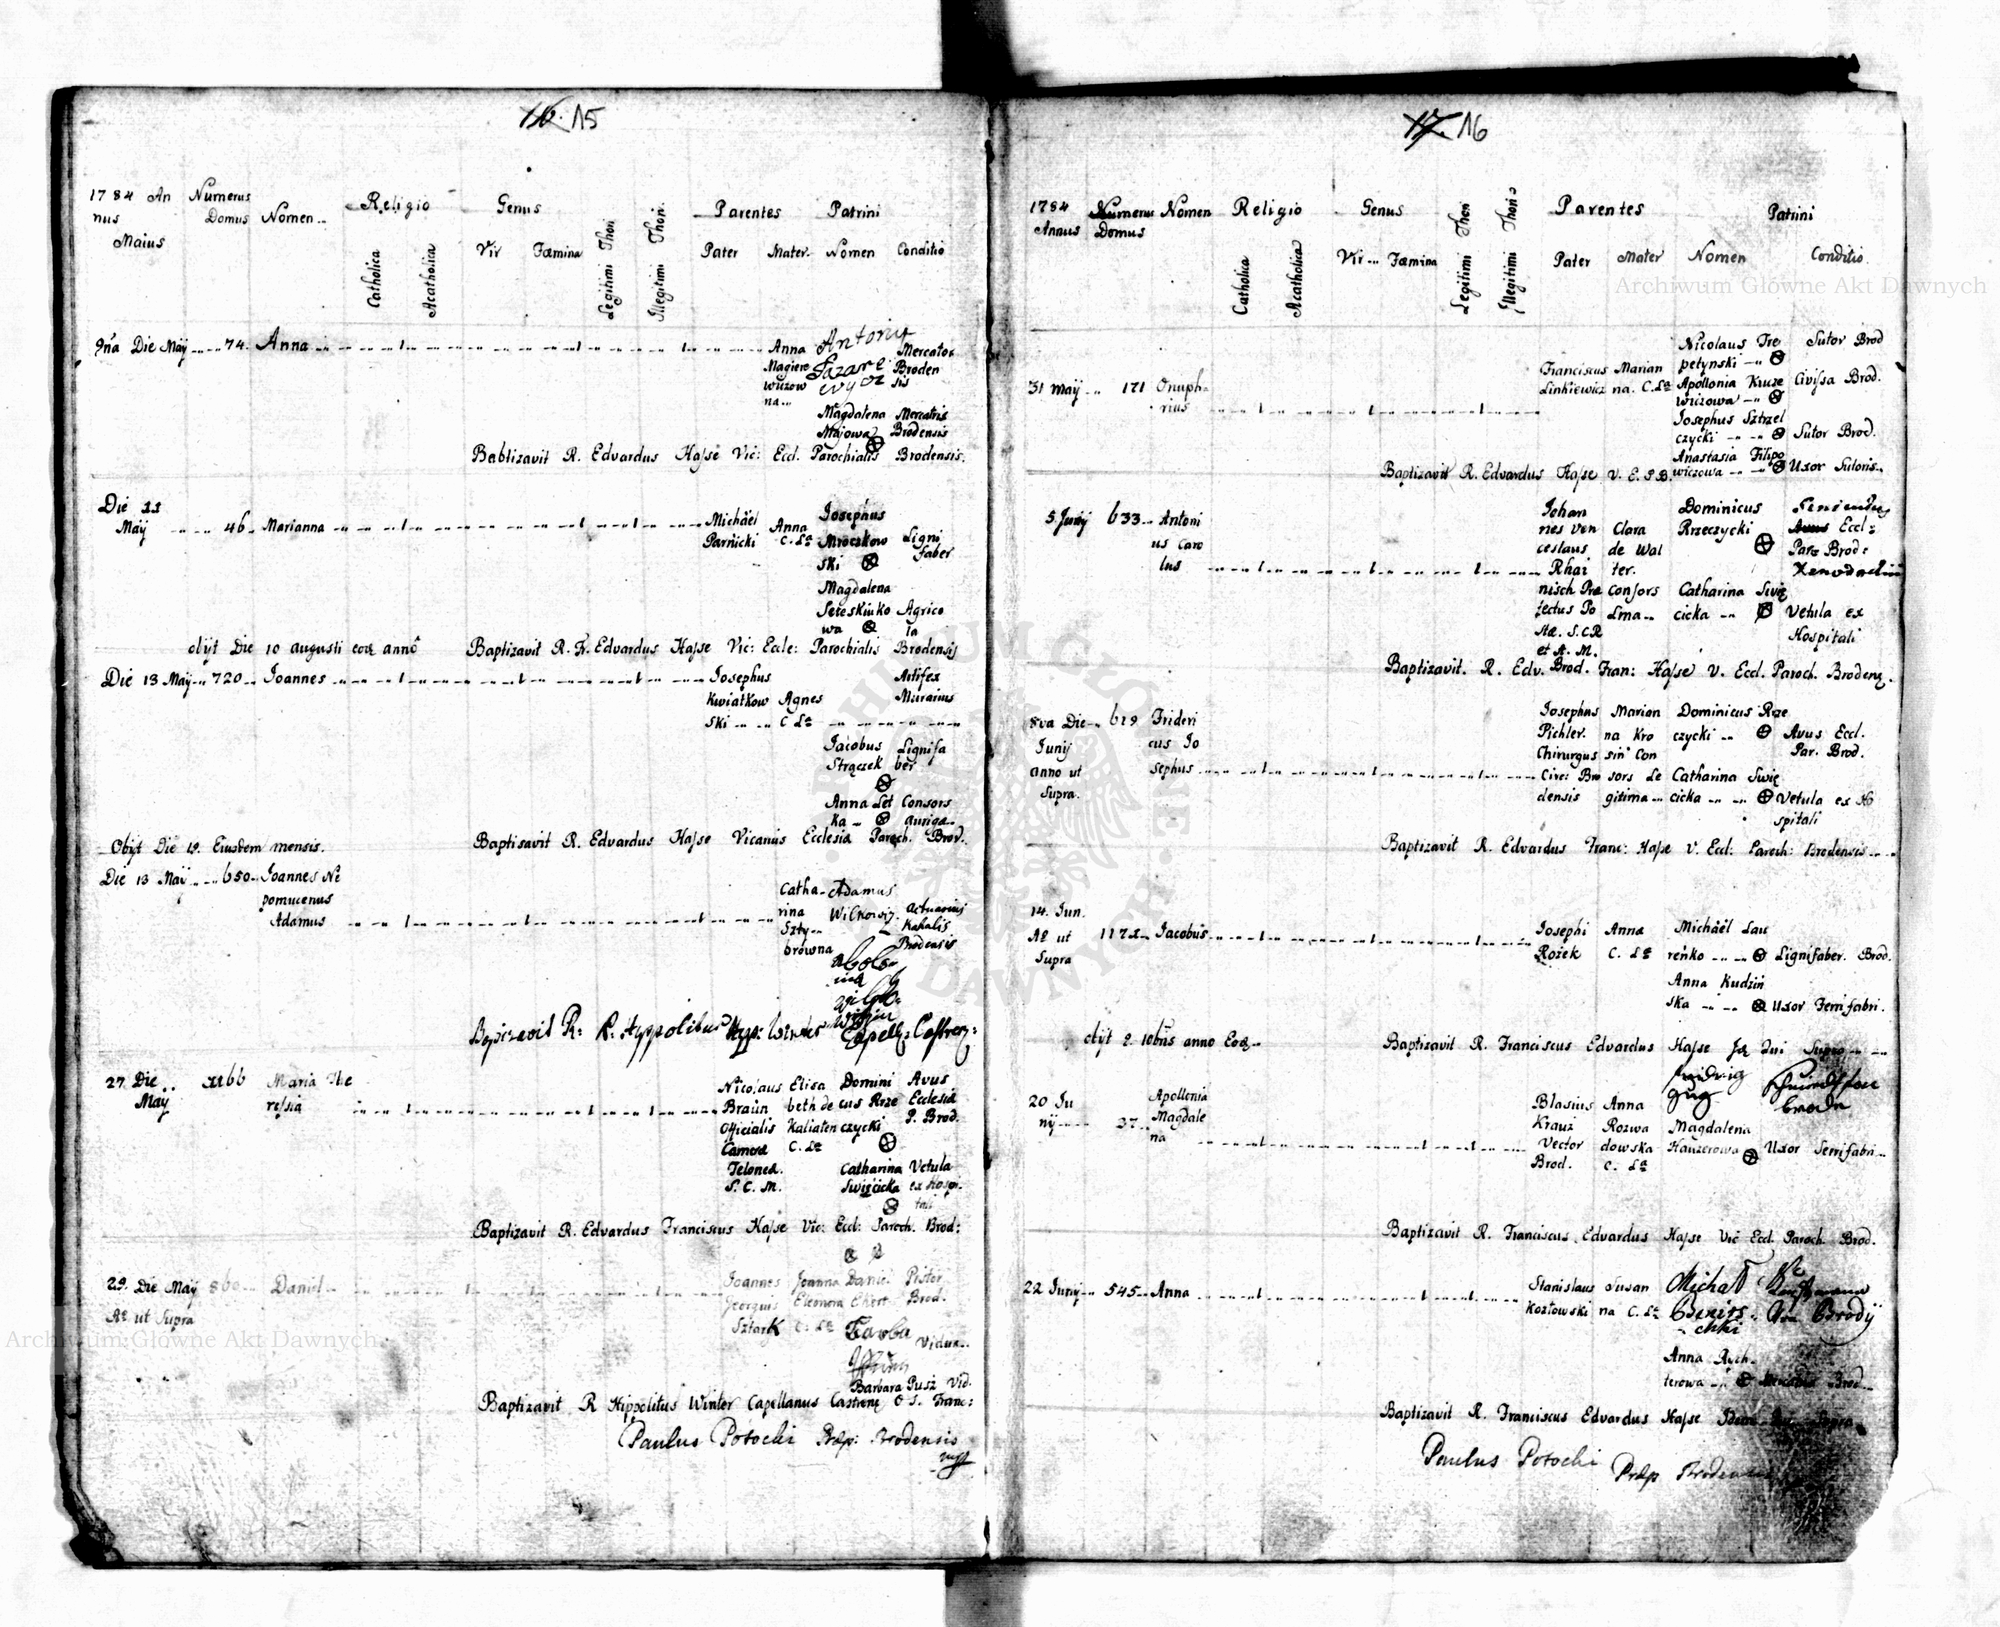 16. 15
1784 An
nus
Maius
Numerus
Domus
Nomen
Religio
Catholica
Acatholica
Genus
Vir
Fœmina
Legitimi Thori
Illegitimi Thori
Parentes
Pater
Mater
Patrini
Nomen
Conditio
9na Die Maÿ 74. Anna
Anna
Magiero
wiczow
na
Antoniy
Łazare
Mercator
Broden
sis
Magdalena
Majowa
Mercatris
Brodensis
Babtizavit R. Edvardus Haſse Vic: Eccl. Parochialis Brodensis.
Die 11
Maÿ 46 Marianna
Michäel
Parnicki
Anna
C. La
Iosephus
Mroczkow
ski
Ligni
faber
Magdalena
wa
Agrico
la
obÿt Die 10 augusti anno
Baptizavit R. Edvardus Haſse Vic: Eccle: Parochialis Brodensis
Die 13 Maÿ 720 Ioannes
Iosephus
Kwiatkow
ski
Agnes
C La
Artifex
Murarius
Iacobus
Strączek
Lignifa
ber
Anna Let
ka
Consors
auriga
Obÿt Die 19. Eiusdem mensis.
Baptisavit R. Edvardus Haſse Vicarius Ecclesiæ Paroch. Brod.
Die 13 Maÿ 650 Ioannes Ne
pomucenus
Adamus
Catha
rina
Szty
brówna
Adamus
Actuarius
Kahalis
Brodensis
R. Hyppolitus Winter Capell: Castren:
27 Die
Maÿ
Maria The
reſsia
Nicolaus
Braün
Officialis
Cameræ
Telonea.
S. C. M.
Elisa
beth de
Kaliaten
C. La
Domini
cus Rze
czycki
Avus
Ecclesiæ
P. Brod.
Catharina
Swięcicka
Vetula
ex Hospi
tali
Baptizavit R. Edvardus Franciscus Haſse Vic: Eccl: Paroch. Brod:
29. Die Maÿ 860 Daniel
Ao ut Supra
Ioannes
Georgius
Sztark
Joanna
Eleonora
C. La
Daniel
Ekert
Pistor
Brod.
Vidua
Barbara Pusz Vid.
Baptizavit R Hippolitus Winter Capellanus Castren O S. Franc:
Paulus Potocki Præp: Brodensis
17. 16
1784
Annus
Numerus
Domus
Nomen
Religio
Catholica
Acatholica
Genus
Vir
Fœmina
Legitimi Thori
Illegitimi Thori
Parentes
Pater
Mater
Patrini
Nomen
Conditio
31 maÿ 171 Onuph
rius
Franciscus
Linkiewicz
Marian
na. C. La
Nicolaus Tre
petynski
Sutor Brod
Apollonia Kruze
wiczowa
Civiſsa Brod.
Iosephus Sztrzel
czycki
Sutor Brod.
Anastasia Filipo
wiczowa
Uxor Sutoris
Baptizavit R. Edvardus Haſse V. E. P. B.
5. Junij 633 Antoni
us Caro
lus
Iohan
nes Ven
ceslaus
Rhai
nisch Præ
fectus Po
stæ. S. C. R
et A. M.
Clara
de Wal
ter.
Consors
Lma
Dominicus
Rzeczycki
Eccl:
Par: Brod:
Catharina Swię
cicka
Vetula ex
Hospitali
Baptizavit. R. Edv. Brod. Fran: Haſse V. Eccl. Paroch. Brodens.
8va Die 619 Frideri
Junij
anno ut
Supra.
cus Io
sephus
Iosephus
Pichler.
Chirurgus
Cive: Bro
densis
Marian
na Kro
sin Con
sors Le
gitima
Dominicus Rze
czycki
Avus Eccl.
Par. Brod.
Catharina Swię
cicka
Vetula ex Ho
spitali
Baptizavit R. Edvardus Franc: Haſse V. Eccl: Paroch: Brodensis
14. Jun.
Ao ut
Supra
Iacobus
Iosephi
Rożek
Anna
C. La
Michäel Lau
reńko
Lignifaber. Brod.
Anna Kudziń
ska
Uxor Ferrifabri.
obÿt 2. 10bris anno Eod
Baptizavit R. Franciscus Edvardus Haſse
20 Ju
nij 37
Apollonia
Magdale
na
Blasius
Krauz
Vector
Brod.
Anna
Rozwa
dowska
C. La
Magdalena
Hauzerowa
Uxor Ferrifabri
Baptizavit R. Franciscus Edvardus Haſse Vic Eccl. Paroch. Brod.
22 Junij 545 Anna
Stanislaus
Kozłowski
Susan
na C. La
Michał
Brody
Anna Rych
terowa
Brod
Baptizavit R. Franciscus Edvardus Haſse
Paulus Potocki Præp Brodensis
Archiwum Główne Akt Dawnych
Archiwum Główne Akt Dawnych
ARCHIWUM GŁÓWNE AKT DAWNYCH